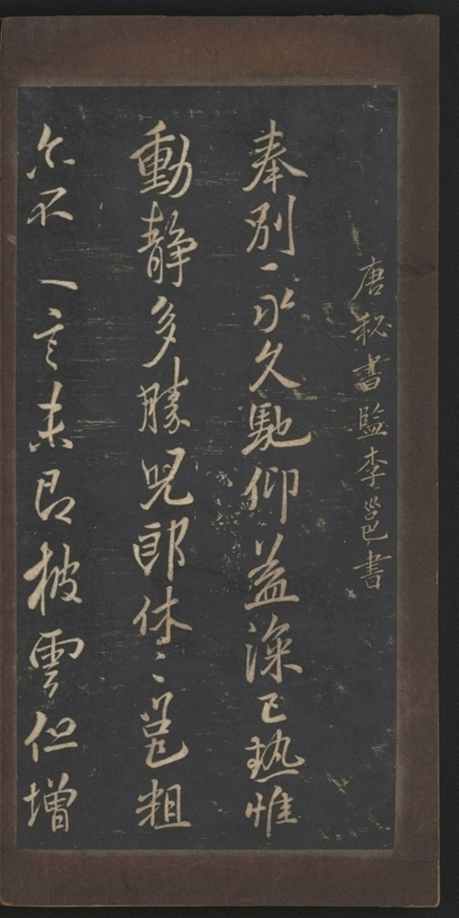 唐秘書監李邕書
奉別永久馳仰益深已熱惟
動靜多勝呪郎休〻邕粗
尒不一言未即披雲但增